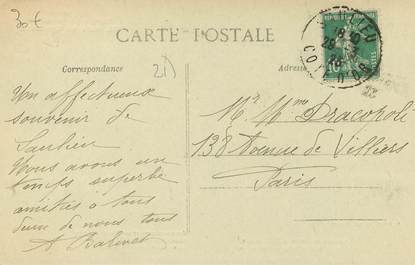 30€
CARTE POSTALE
Correspondance
21
Adresse
Un affectueux
souvenir de
Saulieu
Nous avons un
temps superbe
amitiés à tous
deux de nous tous
A
Mr Mme Dracopoli
138 Avenue de Villiers
Paris